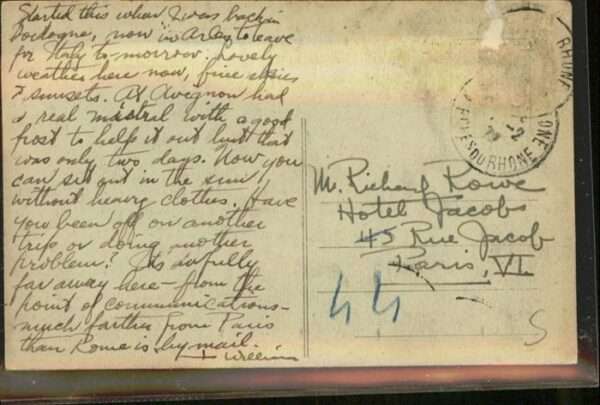 Started this when I was back in
Dordogne, now in Arles to leave
for Italy to-morrow. Lovely
weather here now, fine skies
& sunsets. At Avignon had
a real mistral with a good
frost to help it out but that
was only two days. Now you
can sit out in the sun
without heavy clothes. Have
you been off on another
trip or doing another
problem? It's awfully
far away here - from the
point of communications -
much farther from Paris
than Rome is by mail.
M. Richard Rowe
Hotel Jacobs
45 Rue Jacob
Paris, VI
44
S
RHONE
DU RHONE